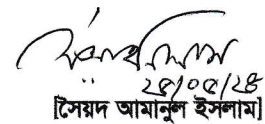 ২৫/০৫/২৪
[সৈয়দ আমানুল ইসলাম]